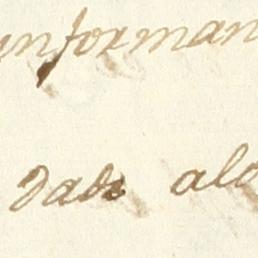 informan
dado alo